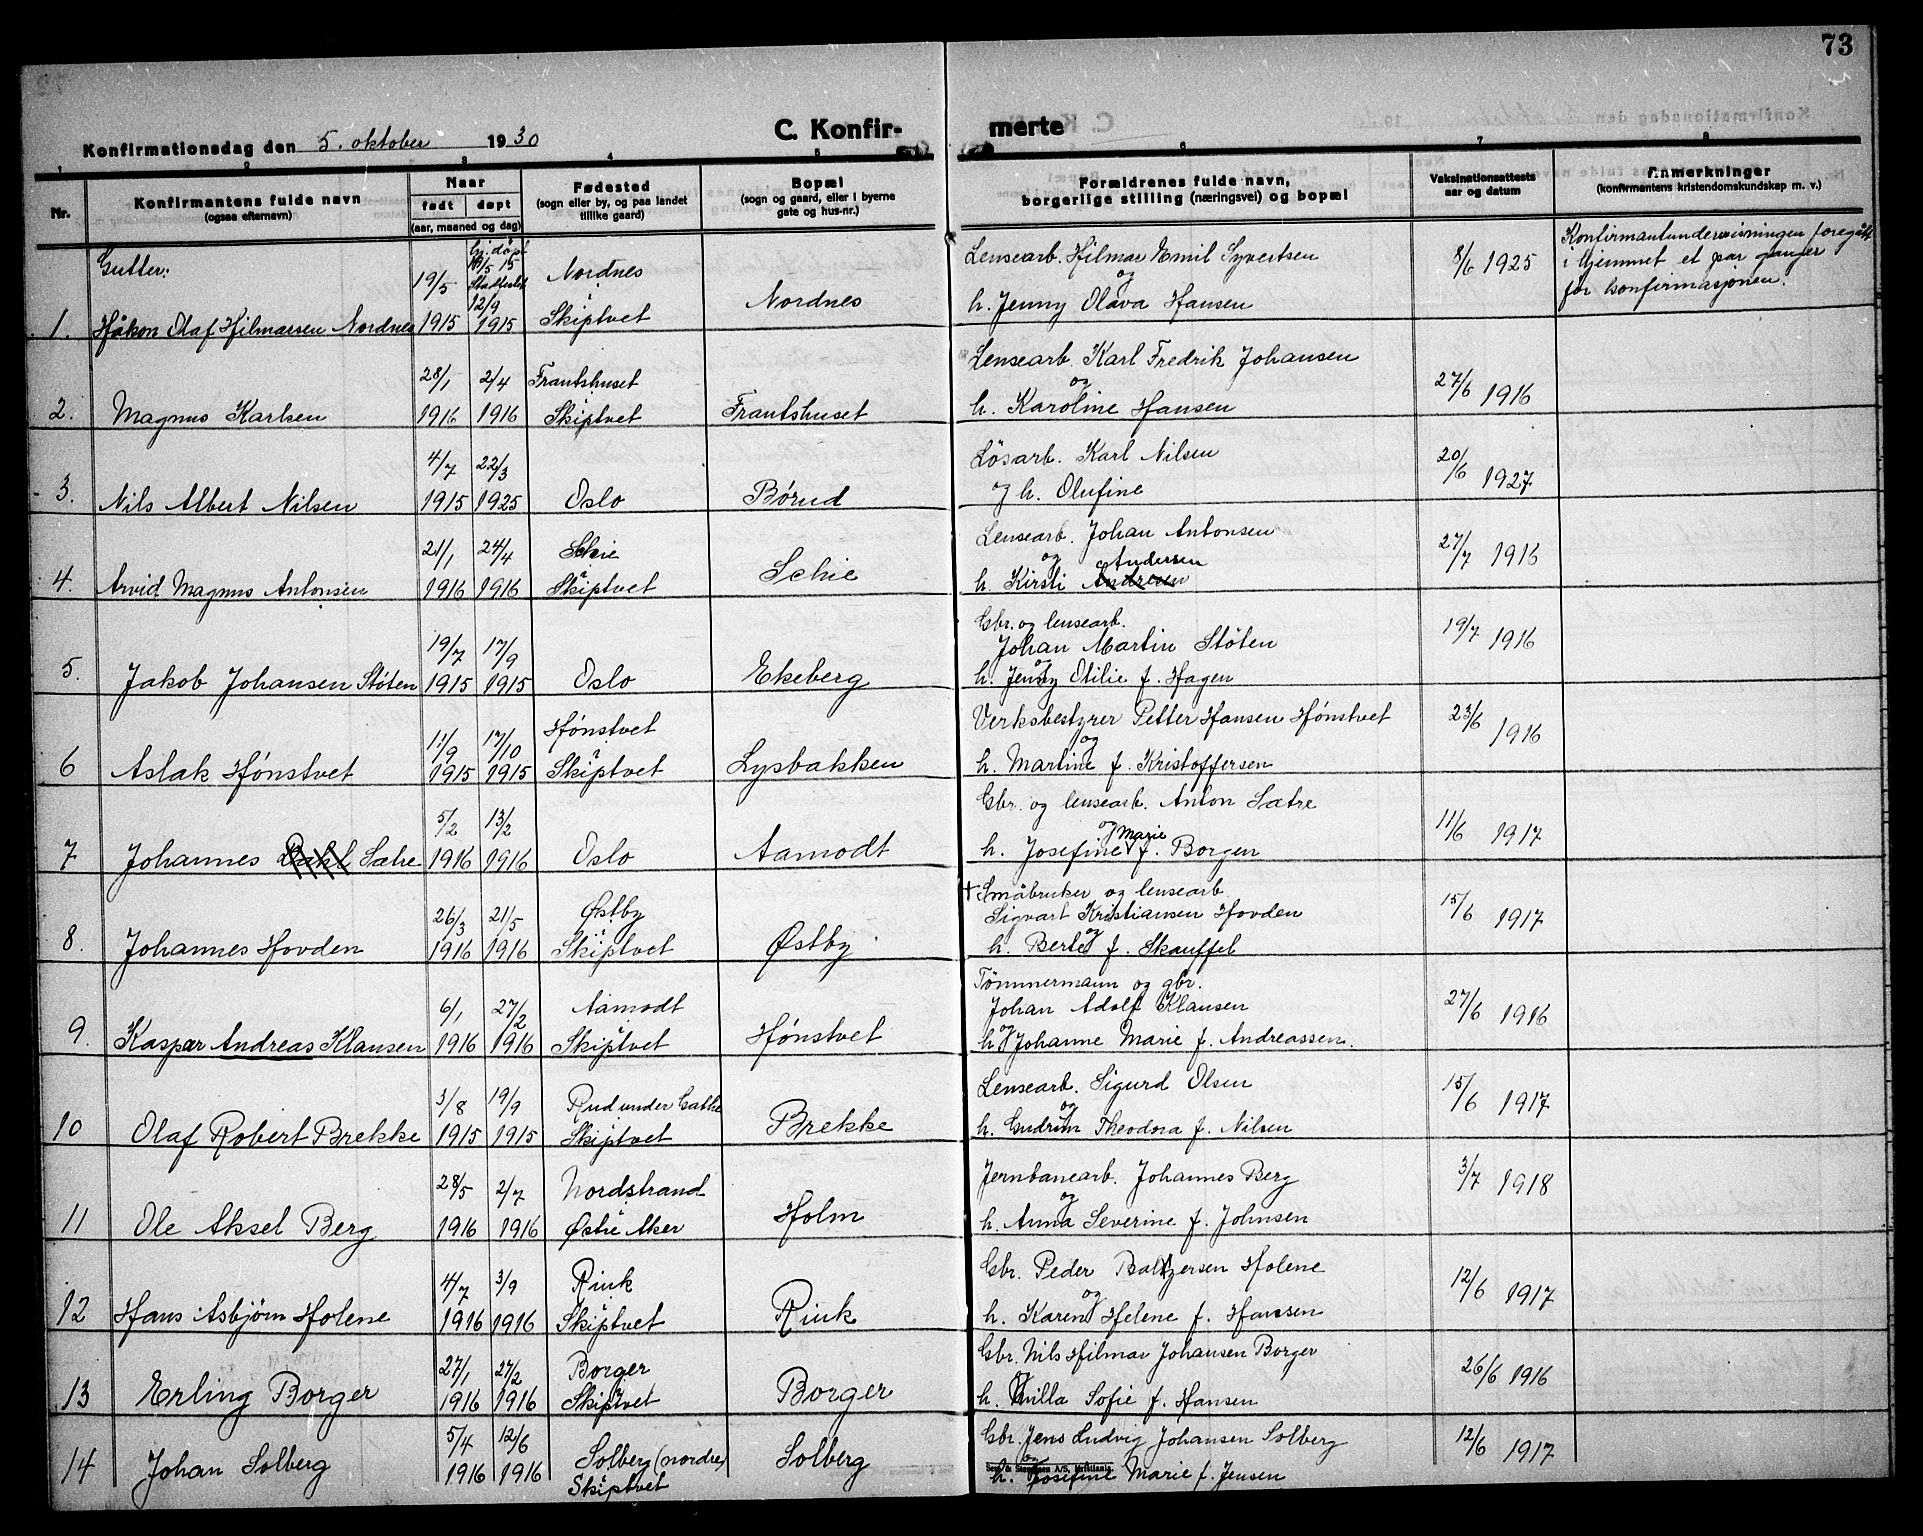 73
C. Konfir-
merte
Konfirmationsdag den 5. oktober 1930
1 2 3 4 5 6 7 8
Nr.
Konfirmantens fulde navn
(ogsaa efternavn)
Naar
født døpt
(aar, maaned og dag)
Fødested
(sogn eller by, og paa landet
tillike gaard)
Bopæl
(sogn og gaard, eller i byerne
gate og hus-nr.)
Forældrenes fulde navn,
borgerlige stilling (næringsvei) og bopæl
Vaksinationsattests
aar og datum
Anmerkninger
(konfirmantens kristendomskundskap m. v.)
Gutter: 19/5 hj. döpt Nordnes Lensearb. Hilmar Emil Syvertsen 8/6 1925 Konfirmantundervisningen foregått
15 Stadfestet og i hjemmet et par ganger
12/9 Nordnes h. Jenny Olava Hansen før konfirmasjonen.
1. Håkon Olaf Hilmarsen Nordnes 1915 1915 Skiptvet
28/1 2/4 Frantshuset Lensearb. Karl Fredrik Johansen 27/6 1916
og
2. Magnus Karlsen 1916 1916 Skiptvet Frantshuset h. Karoline Hansen
4/7 22/3 Lösarb. Karl Nilsen 20/6 1927
3. Nils Albert Nilsen 1915 1925 Oslo Børud og h. Olufine
21/1 24/4 Schie Lensearb. Johan Antonsen 27/7 1916
og Andersen
4. Arvid Magnus Antonsen 1916 1916 Skiptvet Schie h. Kirsti Andresen
19/7 17/9 Gbr. og lensearb. 19/7 1916
Johan Martin Stöten
og
5. Jakob Johansen Stöten 1915 1915 Oslo Ekeberg h. Jenny Otilie f. Hagen
11/9 17/10 Hønstvet Verksbestyrer Petter Hansen Hønstvet 23/6 1916
og
6 Aslak Hønstvet 1915 1915 Skiptvet Lysbakken h. Martine f. Kristoffersen
5/2 13/2 Gbr. og lensearb. Anton Sætre 11/6 1917
og Marie
7 Johannes Sætre 1916 1916 Oslo Aamodt h. Josefine f. Borgen
26/3 21/5 Østby † Småbruker og lensearb. 15/6 1917
Sigvart Kristiansen Hovden
og
8. Johannes Hovden 1916 1916 Skiptvet Østby h. Berte f. Skauffel
6/1 27/2 Aamodt Tömmermann og gbr. 27/6 1916
Johan Adolf Klausen
og
9. Kaspar Andreas Klausen 1916 1916 Skiptvet Hønstvet h. Johanne Marie f. Andreassen.
3/8 19/9 Rud under Lensearb. Sigurd Olsen 15/6 1917
og
10 Olaf Robert Brekke 1915 1915 Skiptvet Brekke h. Gudrun Theodora f. Nilsen
28/5 2/7 Nordstrand Jernbanearb. Johannes Berg 3/7 1918
og
11 Ole Aksel Berg 1916 1916 Østre Aker Holm h. Anna Severine f. Johnsen
4/7 3/9 Rink Gbr. Peder Baltzersen Holene 12/6 1917
og
12 Hans Asbjørn Holene 1916 1916 Skiptvet Rink h. Karen Helene f. Hansen
27/1 27/2 Borger Gbr. Nils Hilmar Johansen Borger 26/6 1916
13 Erling Borger 1916 1916 Skiptvet Borger h. Sofie f. Hansen
5/4 12/6 Solberg (nordre) Gbr. Jens Ludvig Johansen Solberg 12/6 1917
og
14 Johan Solberg 1916 1916 Skiptvet Solberg h. Josefine Marie f. Jensen
A/S, Kristiania